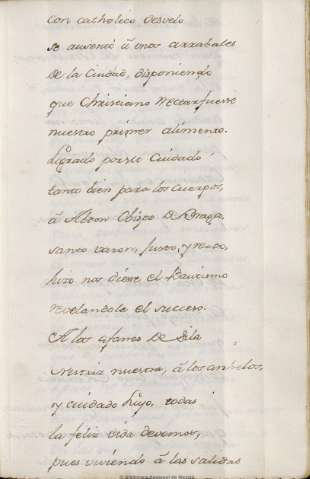 con catholico desvelo
se ausentó á unos arrabales
de la Ciudad, disponiendo
que Christiano Nectar fuesse
nuestro primer alimento.
Logrado por su Cuidado
tanto bien para los Cuerpos,
á Obispo de Braga,
santo varon, justo, y recto,
hizo nos diesse el Bautismo
revelandole el sucesso.
A los afanes de Sila
Nutriz nuestra, á los anhelos,
y cuidado suyo, todas
la feliz vida devemos,
pues viviendo á las salidas
Biblioteca Nacional de